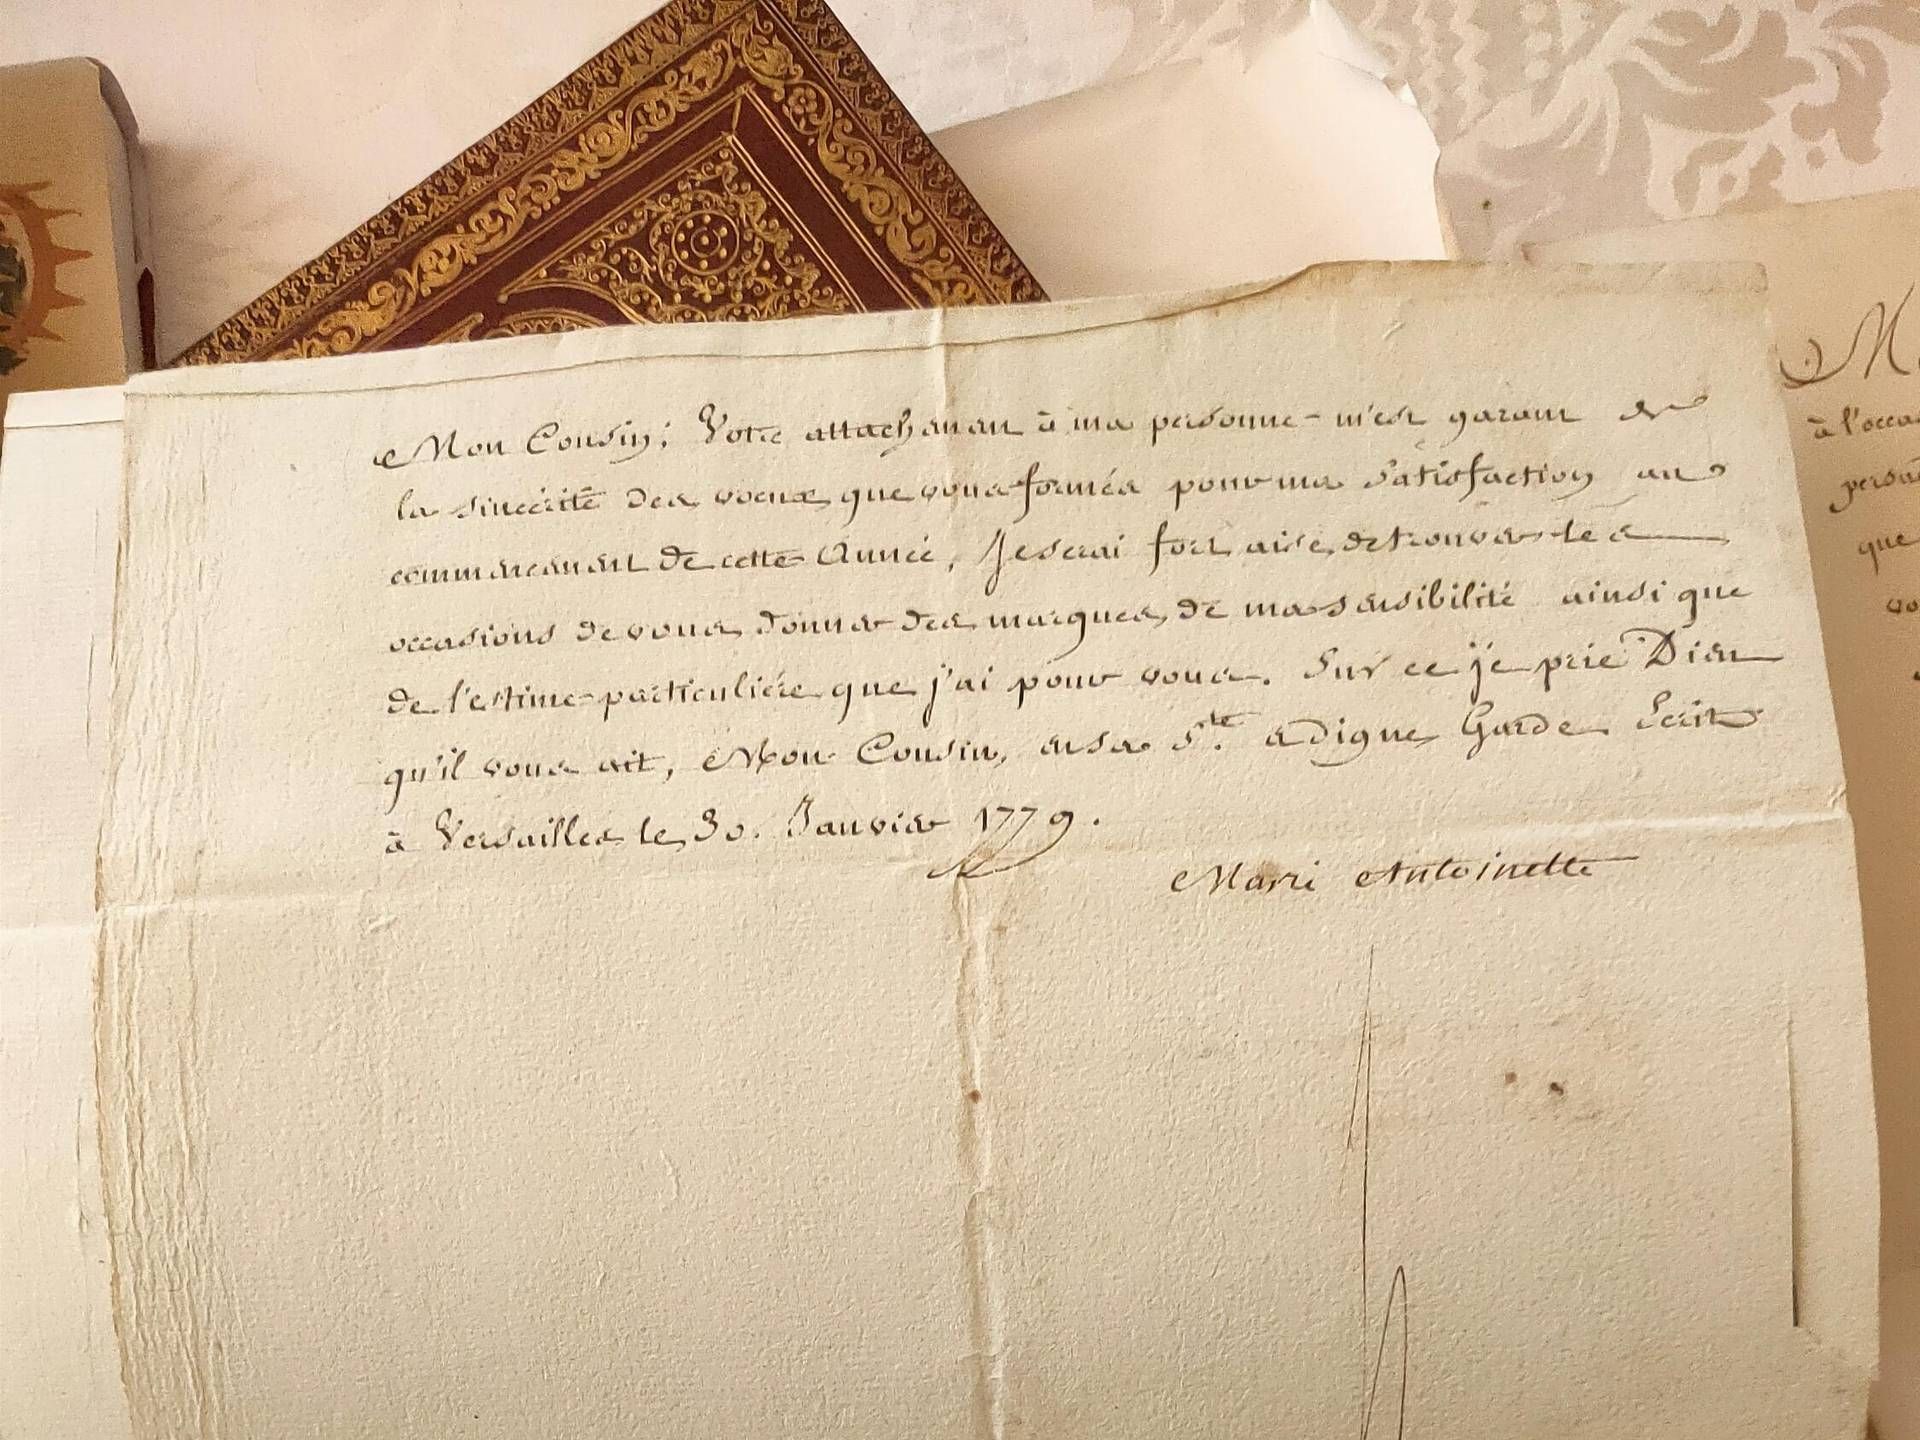 Mon Cousin; Votre attachement à ma personne m'est garant de
la sincérité des voeux que vous formés pour ma Satisfaction au
commencement de cette Année, Je serai fort aise de trouver les
occasions de vous donner des marques de ma sensibilité ainsi que
de l'estime particulière que j'ai pour vous. Sur ce je prie Dieu
qu'il vous ait, Mon Cousin, en sa Ste. & digne Garde. Ecrit
à Versailles le 30. Janvier 1779.
Marie Antoinette
à l'occa
que